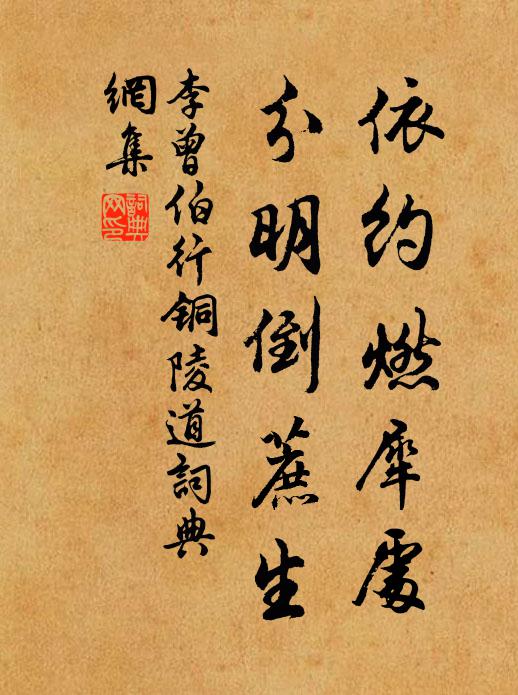 依約燃犀處
分明倒蔗生
李曾伯行铜陵道詞典
網集
詞典
网印